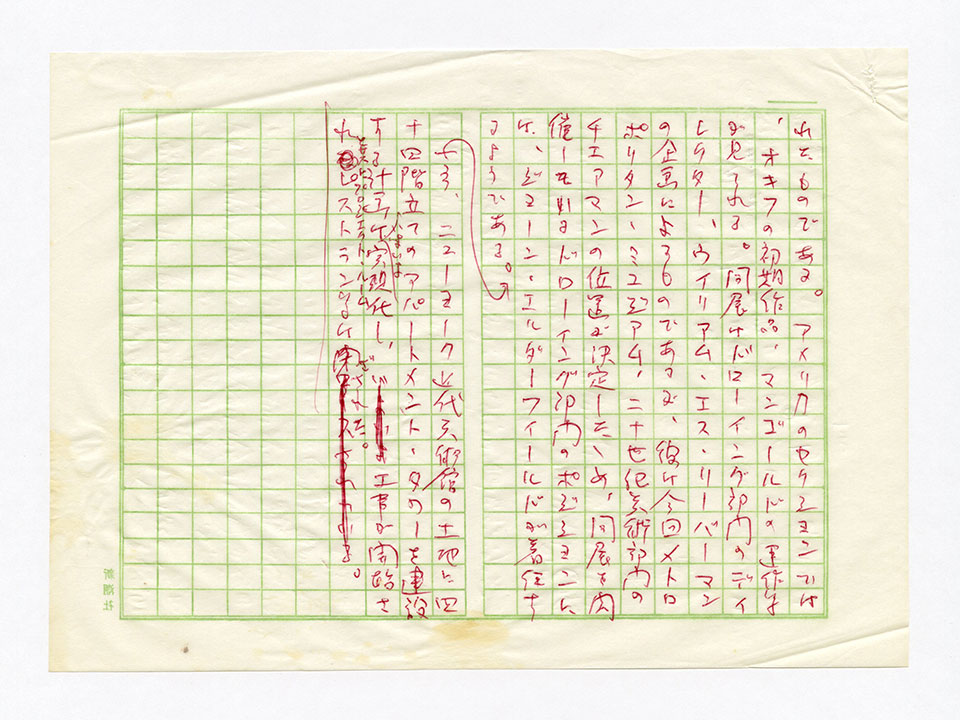 れたものである。アメリカのセクションでは
、オキフの初期作品、マンゴールドの連作等
が見られる。同展はドローイング部門のディ
レクター、ウイリアム・エス・リーバーマン
の企画によるものであるが、彼は今回メトロ
ポリタン・ミュジアム、二十世紀美術部門の
チェアマンの位置が決定したため、同展を開
催しているドローイング部門のポジションに
は、ジョーン・エルダーフィールドが着任す
るようである。
ニューヨーク近代美術館の土地に四
十四階立てのアパートメント・タワーを建設
する計画が実現化し、いよいよ工事が開始さ
れ レストラン等は閉ざされた。